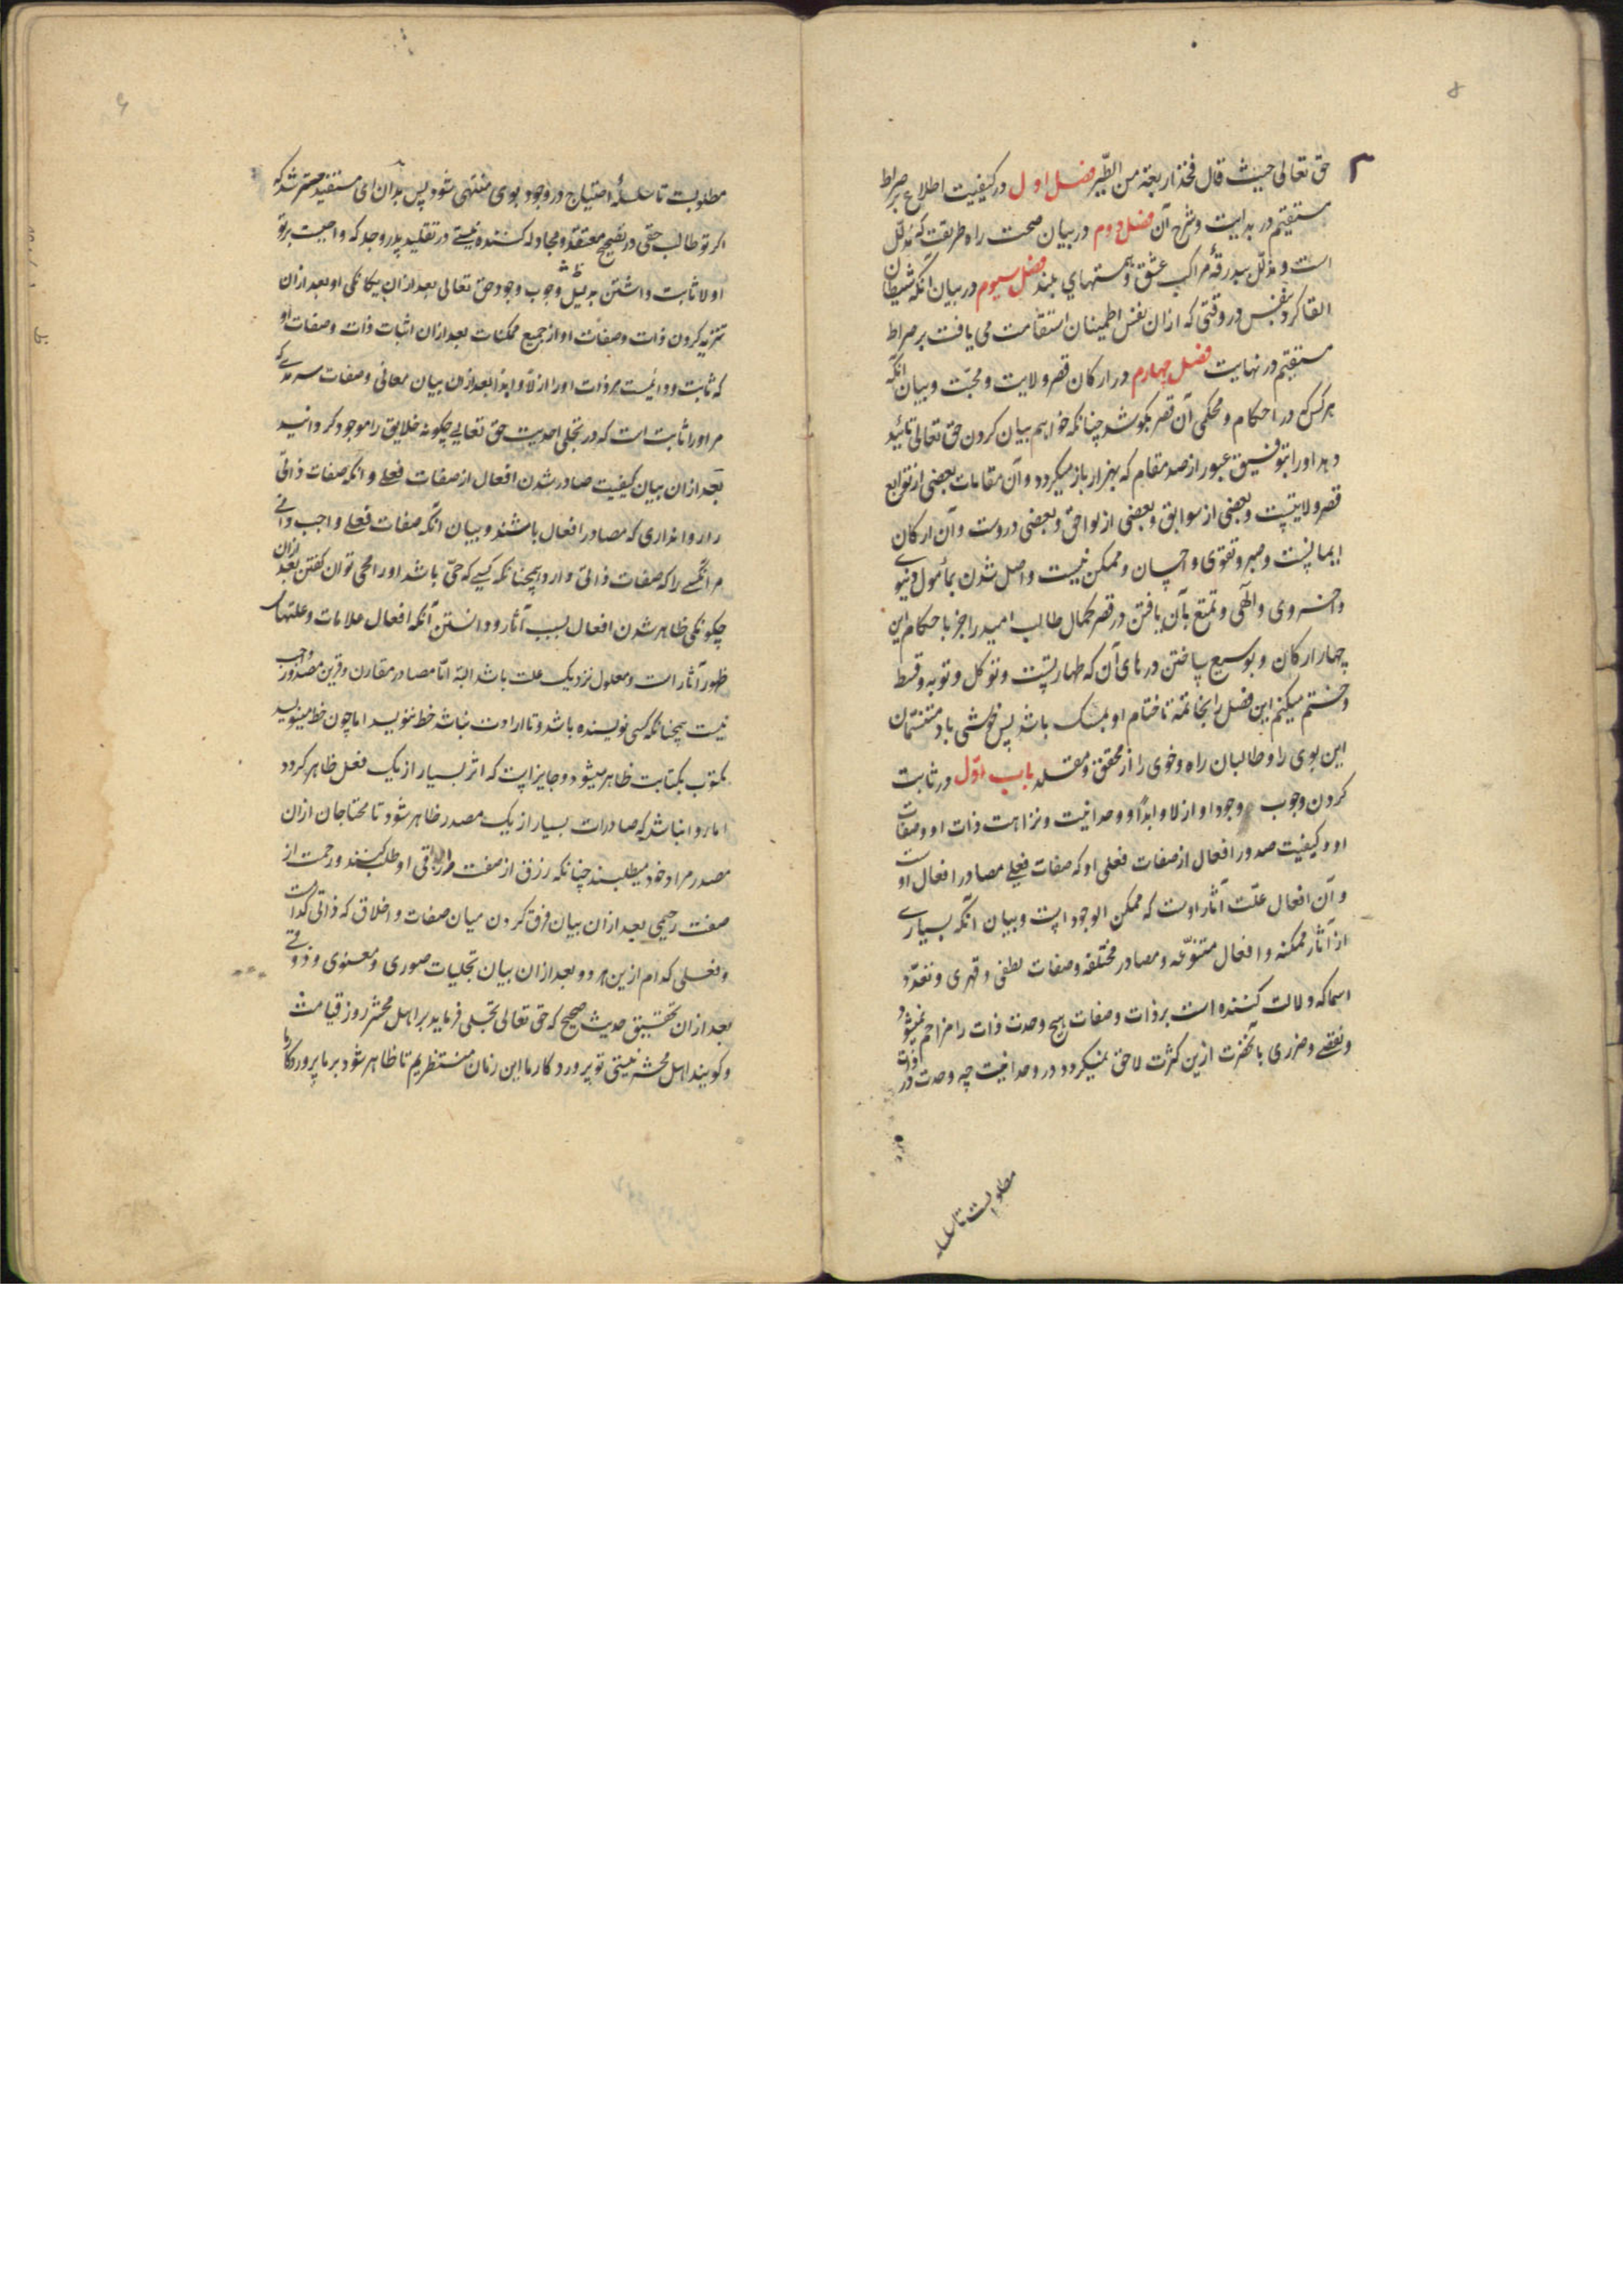 ۸
حق تعالی حیث قال فخذ اربعة من الطیر فصل اول در کیفیت اطلاع بر صراط
مستقیم در بدایت و شرح آن فصل دوم در بیان صحت راه طریقت که مذلل
است و مذلل ببدرقۀ مراکب عشق و همتهای بلند فصل سیوم در بیان آنکه شیطان
القا کرد بنفس در وقتی که ازان نفس اطمینان استقامت می یافت بر صراط
مستقیم در نهایت فصل چهارم در ارکان قصر ولایت و محبت و بیان آنکه
هر کس که در احکام و محکمی آن قصر بکوشد چنانکه خواهم بیان کردن حق تعالی تائید
دهد او را بتوفیق عبور از صد مقام که بهزار باز میگردد و آن مقامات بعضی از توابع
قصر ولایتست و بعضی از سوابق و بعضی از لواحق و بعضی دروست و آن ارکان
ایمانست و صبر و تقوی و احسان و ممکن نیست واصل شدن بمأمول دنیوی
و اخروی و الهی و تمتع بآن یافتن در قصر کمال طالب امید را جز باحکام این
چهار ارکان و بوسیع ساختن درهای آن که طهارتست و توکل و توبه و قسط
و ختم میکنم این فصل را بخاتمة تا ختام او بمسک باشد پس خوشی باد متنسمان
این بوی را و طالبان راه و خوی را از محقق و مقلد باب اول در ثابت
کردن وجوب وجود او ازلا و ابدًا و وحدانیت و نزاهت ذات او و صفات
او و کیفیت صدور افعال از صفات فعلی او که صفات فعلی مصادر افعال اوست
و آن افعال علت آثار اوست که ممکن الوجود است و بیان آنکه بسیاری
از آثار ممکنه و افعال متنوعه و مصادر مختلفه و صفات لطفی و قهری و تعدد
اسما که دلالت کننده است بر ذات و صفات هیچ وحدت ذات را مزاحم نمیشود
و نقصی و ضرری بآنحضرت ازین کثرت لاحق نمیگردد در وحدانیت چه وحدت در ذات
مطلوبست تا سلسله
۹
مطلوبست تا سلسلۀ احتیاج در وجود بوی منتهی شود پس بدان ای مستفید مسترشد که
اگر تو طالب حقی در تصحیح معتقد و مجادله کننده نیستی در تقلید پدر و جد که واجبست بر تو
اولا ثابت داشتن بدلیل وجوب وجود حق تعالی بعد ازان بیگانگی او بعد ازان
تنزیه کردن ذات و صفات او از جمیع ممکنات بعد ازان اثبات ذات و صفات او
که ثابت و دائمست مر ذات او را ازلا و ابدا بعد ازان بیان معانی و صفات سرمدی که
مر او را ثابت است که در تجلی احدیت حق تعالی چگونه خلایق را موجود گردانید
بعد ازان بیان کیفیت صادر شدن افعال از صفات فعلی و آنکه صفات ذاتی
را روا نداری که مصادر افعال باشند و بیان آنکه صفات فعلی واجب دانی
مر آنکسی را که صفات ذاتی دارد همچنانکه کسی که حق باشد او را حی توان گفتن بعد ازان
چگونگی ظاهر شدن افعال بسبب آثار و دانستن آنکه افعال علامات و علتهای
ظهور آثار است و معلول نزدیک علت باشد البته اما مصادر مقارن و قرین مصدور واجب
نیست همچنانکه کسی نویسنده باشد و تا ارادت نباشد خط ننویسد اما چون خط مینویسد
مکتوب بکتابت ظاهر میشود و جایز است که اثر بسیار از یک فعل ظاهر گردد
اما روا نباشد که صادرات بسیار از یک مصدر ظاهر شود تا محتاجان ازان
مصدر مراد خود میطلبند چنانکه رزق از صفت رزاقی او طلب کنند و رحمت از
صفت رحیمی بعد ازان بیان فرق کردن میان صفات و اخلاق که ذاتی کدامست
و فعلی کدام ازین هر دو و بعد ازان بیان تجلیات صوری و معنوی و ذوقی
بعد ازان تحقیق حدیث صحیح که حق تعالی تجلی فرماید بر اهل محشر روز قیامت
و گویند اهل محشر نیستی تو پروردگار ما این زمان منتظریم تا ظاهر شود بر ما پروردگار ما